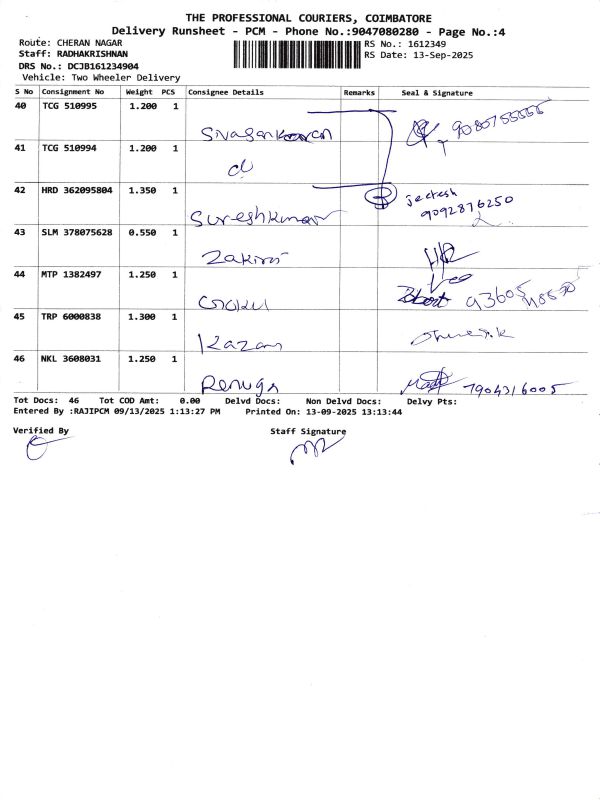 THE PROFESSIONAL COURIERS, COIMBATORE
Delivery Runsheet - PCM - Phone No.:9047080280 - Page No.:4
Route: CHERAN NAGAR RS No.: 1612349
Staff: RADHAKRISHNAN RS Date: 13-Sep-2025
DRS No.: DCJB161234904
Vehicle: Two Wheeler Delivery
S No Consignment No Weight PCS Consignee Details Remarks Seal & Signature
40 TCG 510995 1.200 1
Sivasankaran
41 TCG 510994 1.200 1
42 HRD 362095804 1.350 1 Jeetesh
Sureshkumar 9092876250
43 SLM 378075628 0.550 1
Zakir
44 MTP 1382497 1.250 1
Gokul
45 TRP 6000838 1.300 1
Kazan
46 NKL 3608031 1.250 1
Renuga 7904316005
Tot Docs: 46 Tot COD Amt: 0.00 Delvd Docs: Non Delvd Docs: Delvy Pts:
Entered By :RAJIPCM 09/13/2025 1:13:27 PM Printed On: 13-09-2025 13:13:44
Verified By Staff Signature